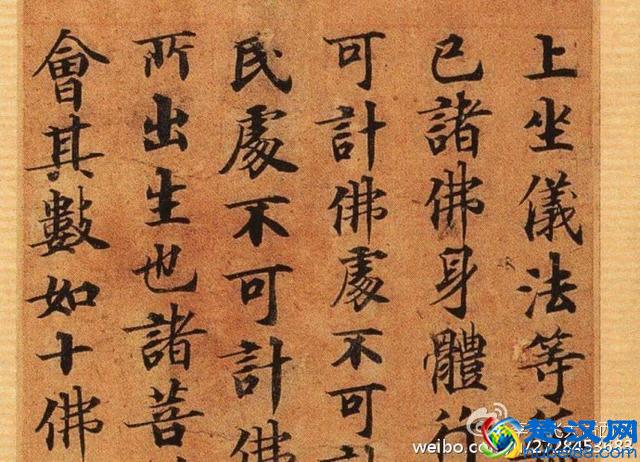 上坐儀法等
已諸佛身體行
可計佛處不可計
民處不可計佛
所出生也諸菩
會其數如十佛
weibo.com/
楚汉网